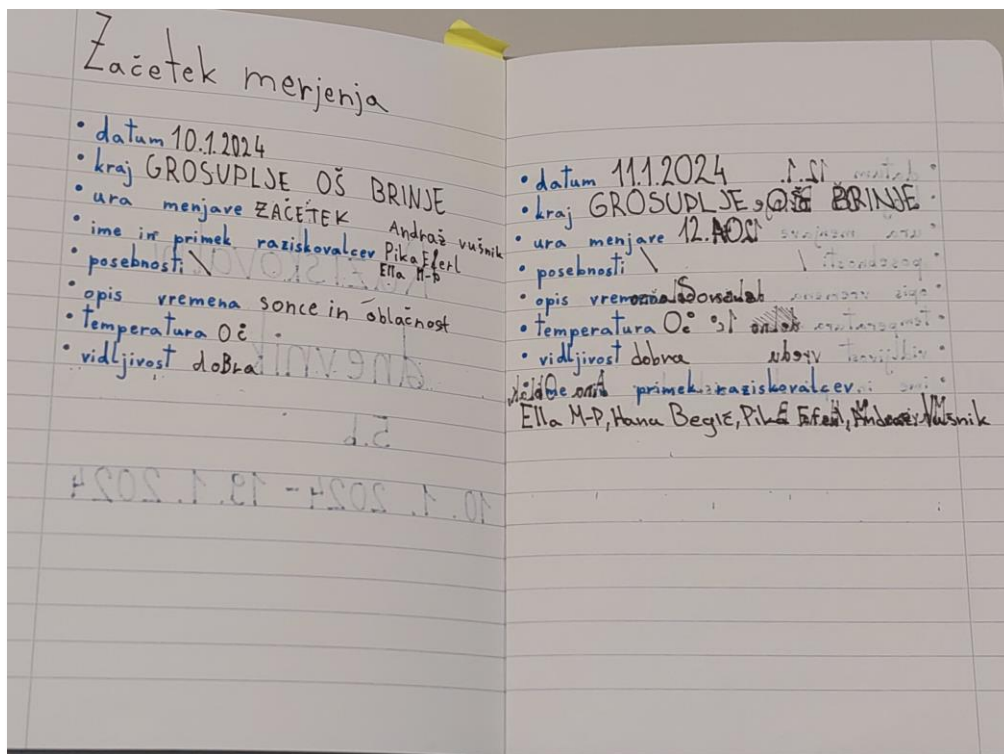 Začetek merjenja
• datum 10.1.2024
• kraj GROSUPLJE OŠ BRINJE
• ura menjave ZAČETEK
• ime in primek raziskovalcev Andraž vušnik
Pika Eferl
Ella M-P
• posebnosti \
• opis vremena sonce in oblačnost
• temperatura 0č
• vidljivost doBra
• datum 11.1.2024
• kraj GROSUPLJE, OŠ BRINJE
• ura menjave 12.
• posebnosti \
• opis
• temperatura 0č
• vidljivost dobra
primek raziskovalcev
Ella M-P, Hana Begić, Pika Eferl, Vušnik